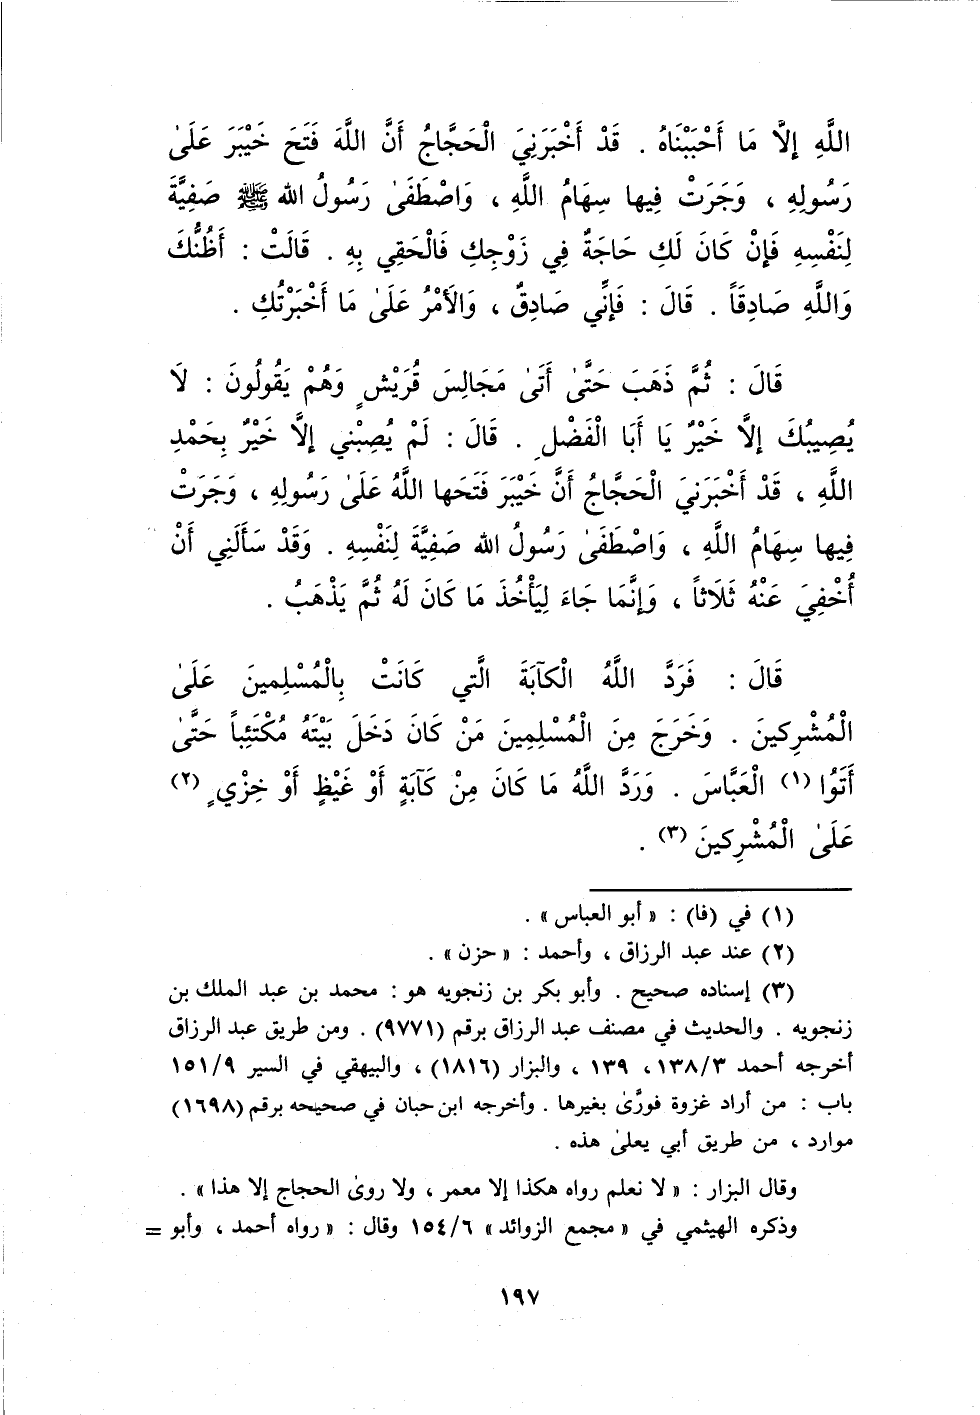 اللَّهِ إِلاَّ مَا أَحْبَبْنَاهُ . قَدْ أَخْبَرَنِيَ الْحَجَّاجُ أَنَّ اللَّهَ فَتَحَ خَيْبَرَ عَلَىٰ
رَسُولِهِ ، وَجَرَتْ فِيها سِهَامُ اللَّهِ ، وَاصْطَفَىٰ رَسُولُ الله ﷺ صَفِيَّةَ
لِنَفْسِهِ فَإِنْ كَانَ لَكِ حَاجَةٌ فِي زَوْجِكِ فَالْحَقِي بِهِ . قَالَتْ : أَظُنُّكَ
وَاللَّهِ صَادِقَاً . قَالَ : فَإِنِّي صَادِقٌ ، وَالأَمْرُ عَلَىٰ مَا أَخْبَرْتُكِ .
قَالَ : ثُمَّ ذَهَبَ حَتَّىٰ أَتَىٰ مَجَالِسَ قُرَيْشٍ وَهُمْ يَقُولُونَ : لَا
يُصِيبُكَ إِلاَّ خَيْرٌ يَا أَبَا الْفَضْلِ . قَالَ : لَمْ يُصِبْنِي إِلاَّ خَيْرٌ بِحَمْدِ
اللَّهِ ، قَدْ أَخْبَرَنِيَ الْحَجَّاجُ أَنَّ خَيْبَرَ فَتَحَها اللَّهُ عَلَىٰ رَسُولِهِ ، وَجَرَتْ
فِيها سِهَامُ اللَّهِ ، وَاصْطَفَىٰ رَسُولُ الله صَفِيَّةَ لِنَفْسِهِ . وَقَدْ سَأَلَنِي أَنْ
أُخْفِيَ عَنْهُ ثَلَاثاً ، وَإِنَّمَا جَاءَ لِيَأْخُذَ مَا كَانَ لَهُ ثُمَّ يَذْهَبُ .
قَالَ : فَرَدَّ اللَّهُ الْكآبَةَ الَّتِي كَانَتْ بِالْمُسْلِمِينَ عَلَىٰ
الْمُشْرِكِينَ . وَخَرَجَ مِنَ الْمُسْلِمِينَ مَنْ كَانَ دَخَلَ بَيْتَهُ مُكْتَئِباً حَتَّىٰ
أَتَوُا (١) الْعَبَّاسَ . وَرَدَّ اللَّهُ مَا كَانَ مِنْ كَآبَةٍ أَوْ غَيْظٍ أَوْ خِزْيٍ (٢)
عَلَىٰ الْمُشْرِكِينَ (٣) .
(١) في (فا) : « أبو العباس » .
(٢) عند عبد الرزاق ، وأحمد : « حزن » .
(٣) إسناده صحيح . وأبو بكر بن زنجويه هو : محمد بن عبد الملك بن
زنجويه . والحديث في مصنف عبد الرزاق برقم (٩٧٧١) . ومن طريق عبد الرزاق
أخرجه أحمد ١٣٨/٣ ، ١٣٩ ، والبزار (١٨١٦) ، والبيهقي في السير ١٥١/٩
باب : من أراد غزوة فورَّىٰ بغيرها . وأخرجه ابن حبان في صحيحه برقم (١٦٩٨)
موارد ، من طريق أبي يعلىٰ هذه .
وقال البزار : « لا نعلم رواه هكذا إلا معمر ، ولا روىٰ الحجاج إلا هذا » .
وذكره الهيثمي في « مجمع الزوائد » ١٥٤/٦ وقال : « رواه أحمد ، وأبو =
١٩٧